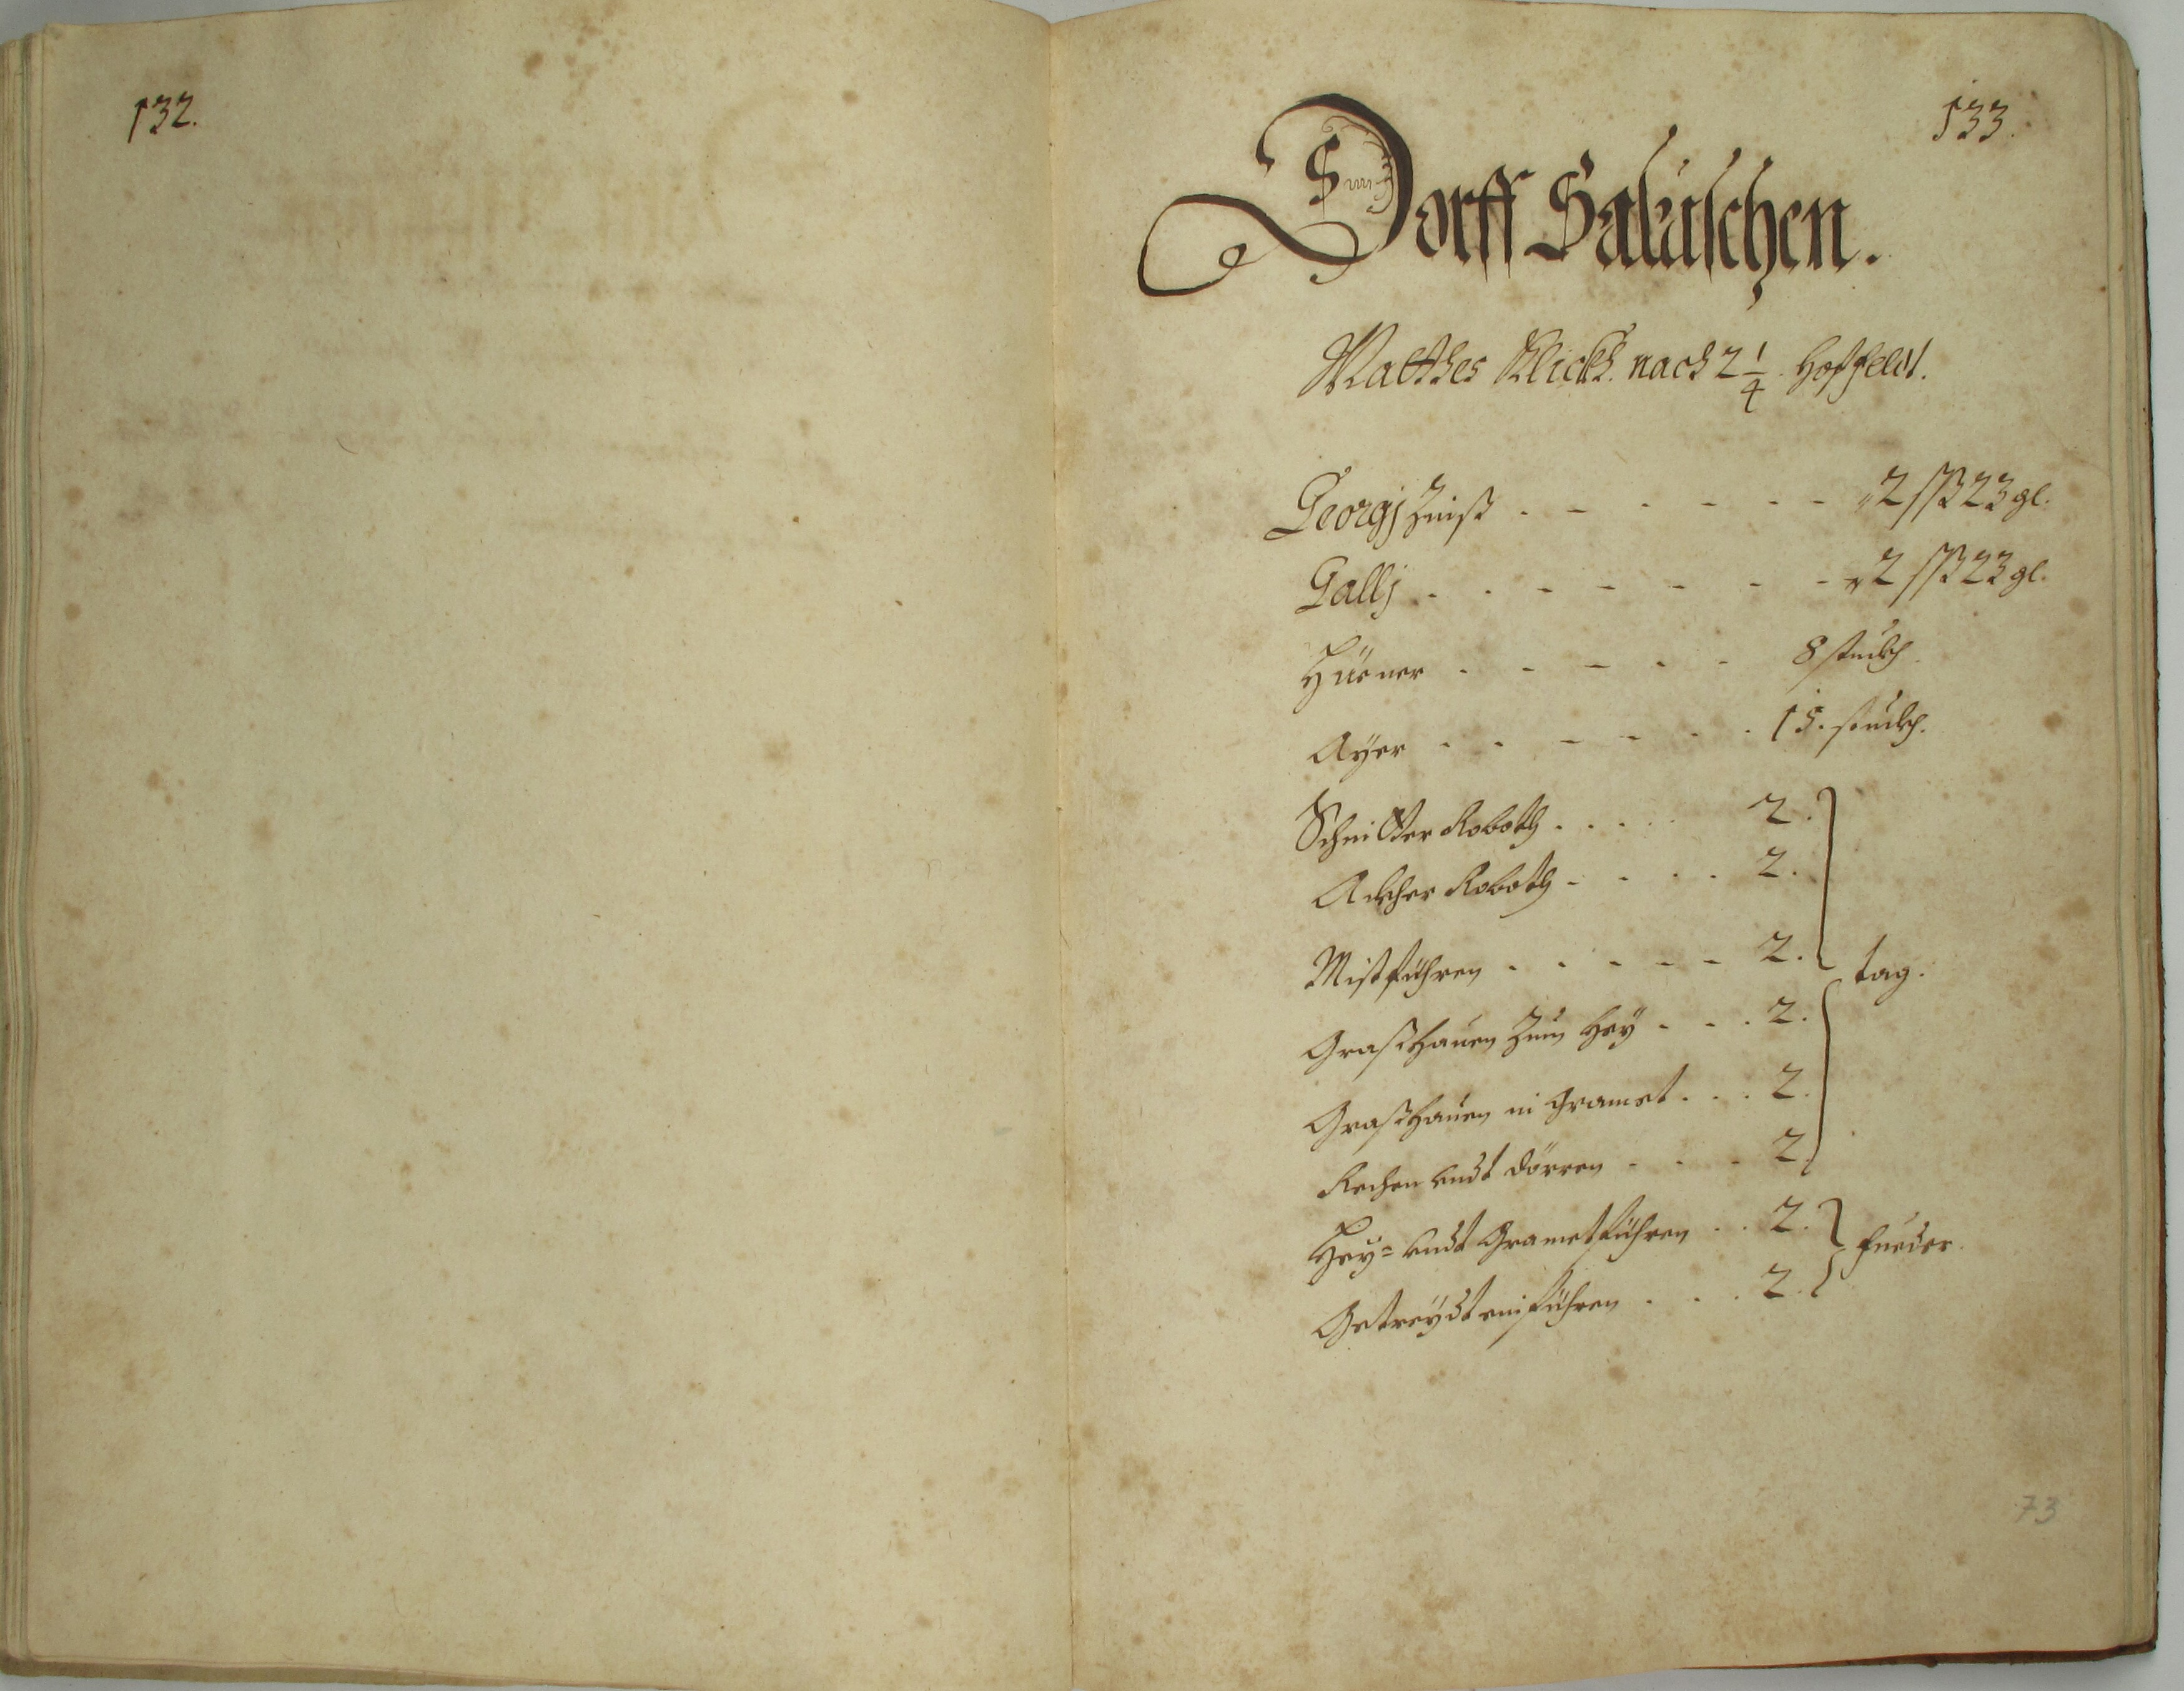 132.
133.
Dorff Saluschen.
Matthes Klickh. nach 2 1/4. Hoffeldt.
Georgj Zinß . - . - . - 2 ßß 23 gl.
Gallj . . - - - - 2 ßß 23 gl.
Hüener . - - . - 8 stuckh.
Ayer . . - - . . 15. stuckh.
Schnitter Roboth . . . . 2.
Ackher Roboth - . . . 2.
Mistführen . . . - - 2.
tag.
Graßhauen zum Hey . . . 2.
Graßhauen in Gramet . . . 2.
Rechen undt dörren . . . 2.
Hey= undt Grametführen . . 2.
fueder.
Getreydt einführen . . . 2.
73